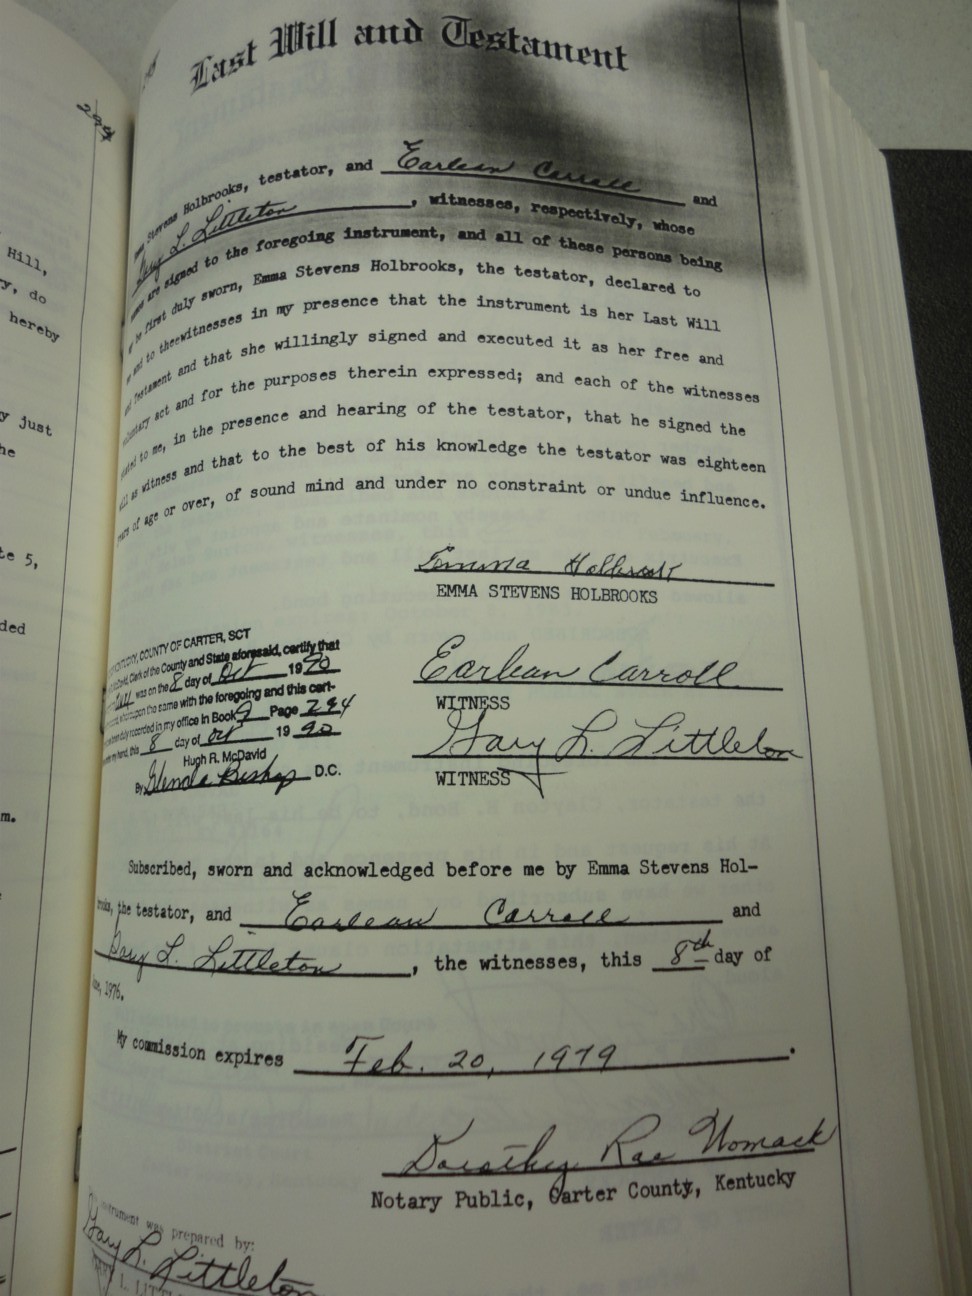 294
Hill,
do
hereby
just
5,
Last Will and Testament
Stevens Holbrooks, testator, and Earlean Carroll and
Gary L. Littleton, witnesses, respectively, whose
are signed to the foregoing instrument, and all of these persons being
first duly sworn, Emma Stevens Holbrooks, the testator, declared to
and to theewitnesses in my presence that the instrument is her Last Will
Testament and that she willingly signed and executed it as her free and
act and for the purposes therein expressed; and each of the witnesses
to me, in the presence and hearing of the testator, that he signed the
as witness and that to the best of his knowledge the testator was eighteen
of age or over, of sound mind and under no constraint or undue influence.
Emma Holbrook
EMMA STEVENS HOLBROOKS
COUNTY OF CARTER, SCT
Clerk of the County and State aforesaid, certify that
was on the 8 day of Oct 19
the same with the foregoing and this cert-
duly recorded in my office in Book 9 Page 294
hand, this 8 day of Oct 19 90
Hugh R. McDavid
By Glenda Bishop D.C.
Earlean Carroll
WITNESS
Gary L. Littleton
WITNESS
Subscribed, sworn and acknowledged before me by Emma Stevens Hol-
the testator, and Earlean Carroll and
Gary L. Littleton, the witnesses, this 8th day of
1976.
My commission expires Feb. 20, 1979.
Dorothy Rae Womack
Notary Public, Carter County, Kentucky
was prepared by:
Gary L. Littleton